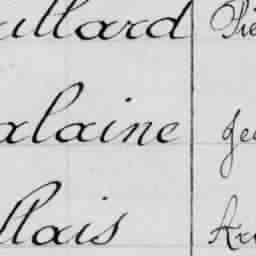 ullard Pie
alaine Je
llais Ar